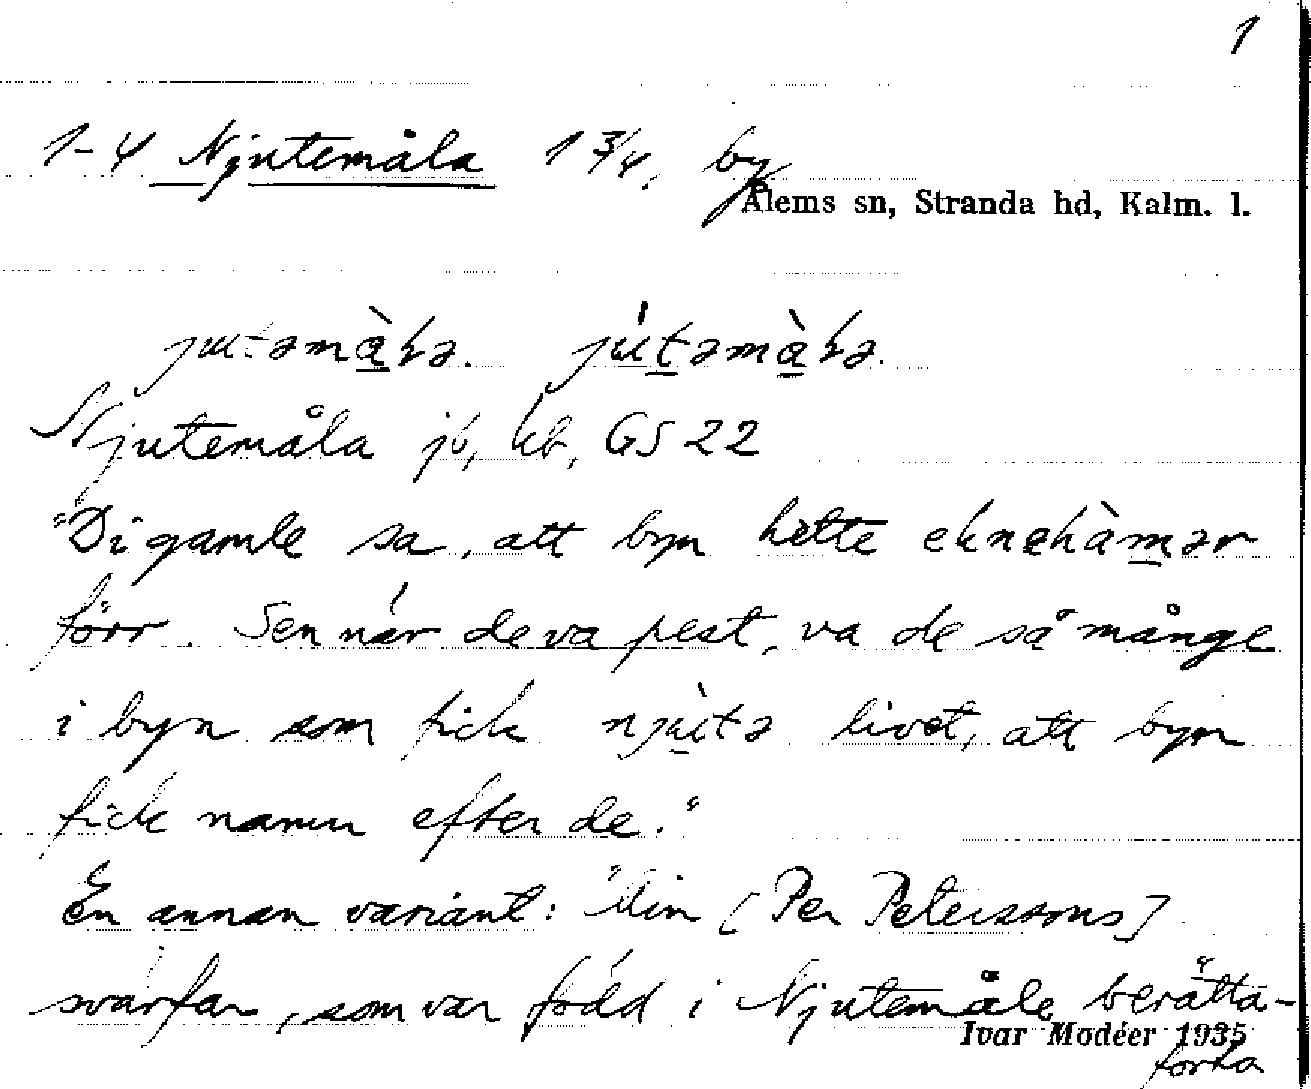 1
1-4 Njutemåla 1 3/4, by
Ålems sn, Stranda hd, Kalm. l.
jutəmàlə. jútəmàlə.
Njutemåla jb, kb, GS 22
"Di gamle sa, att byn hette eknehàmər
förr. Sen när de va pest, va de så månge
i byn som fick njùtə livet, att byn
fick namn efter de."
En annan variant: "Min [Per Peterssons]
svärfar, som var född i Njutemåle berätta-
Ivar Modéer 1935
forts